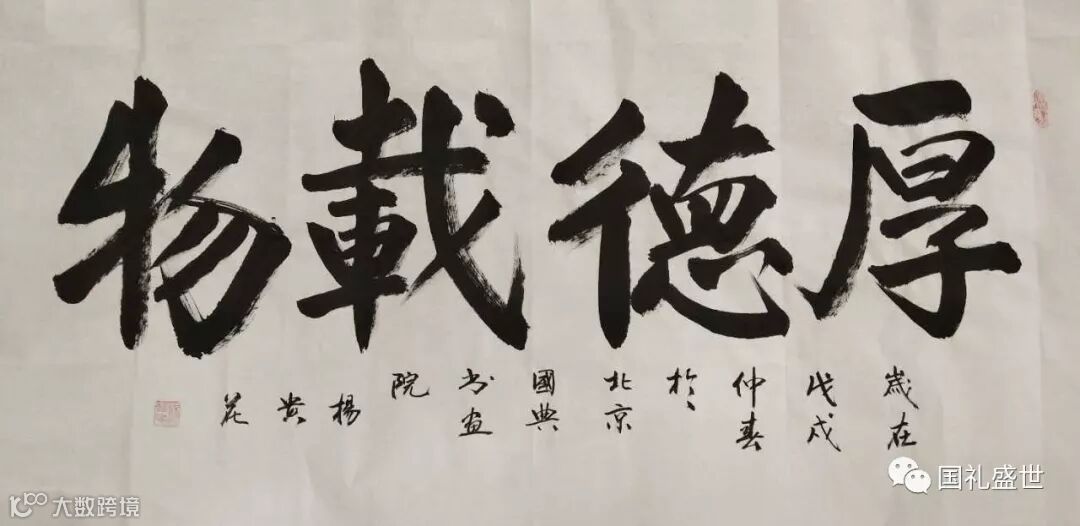 厚德載物
歲在
戊戌
仲春
於
北京
國典
书画
院
楊
贵
花
国礼盛世
大数跨境